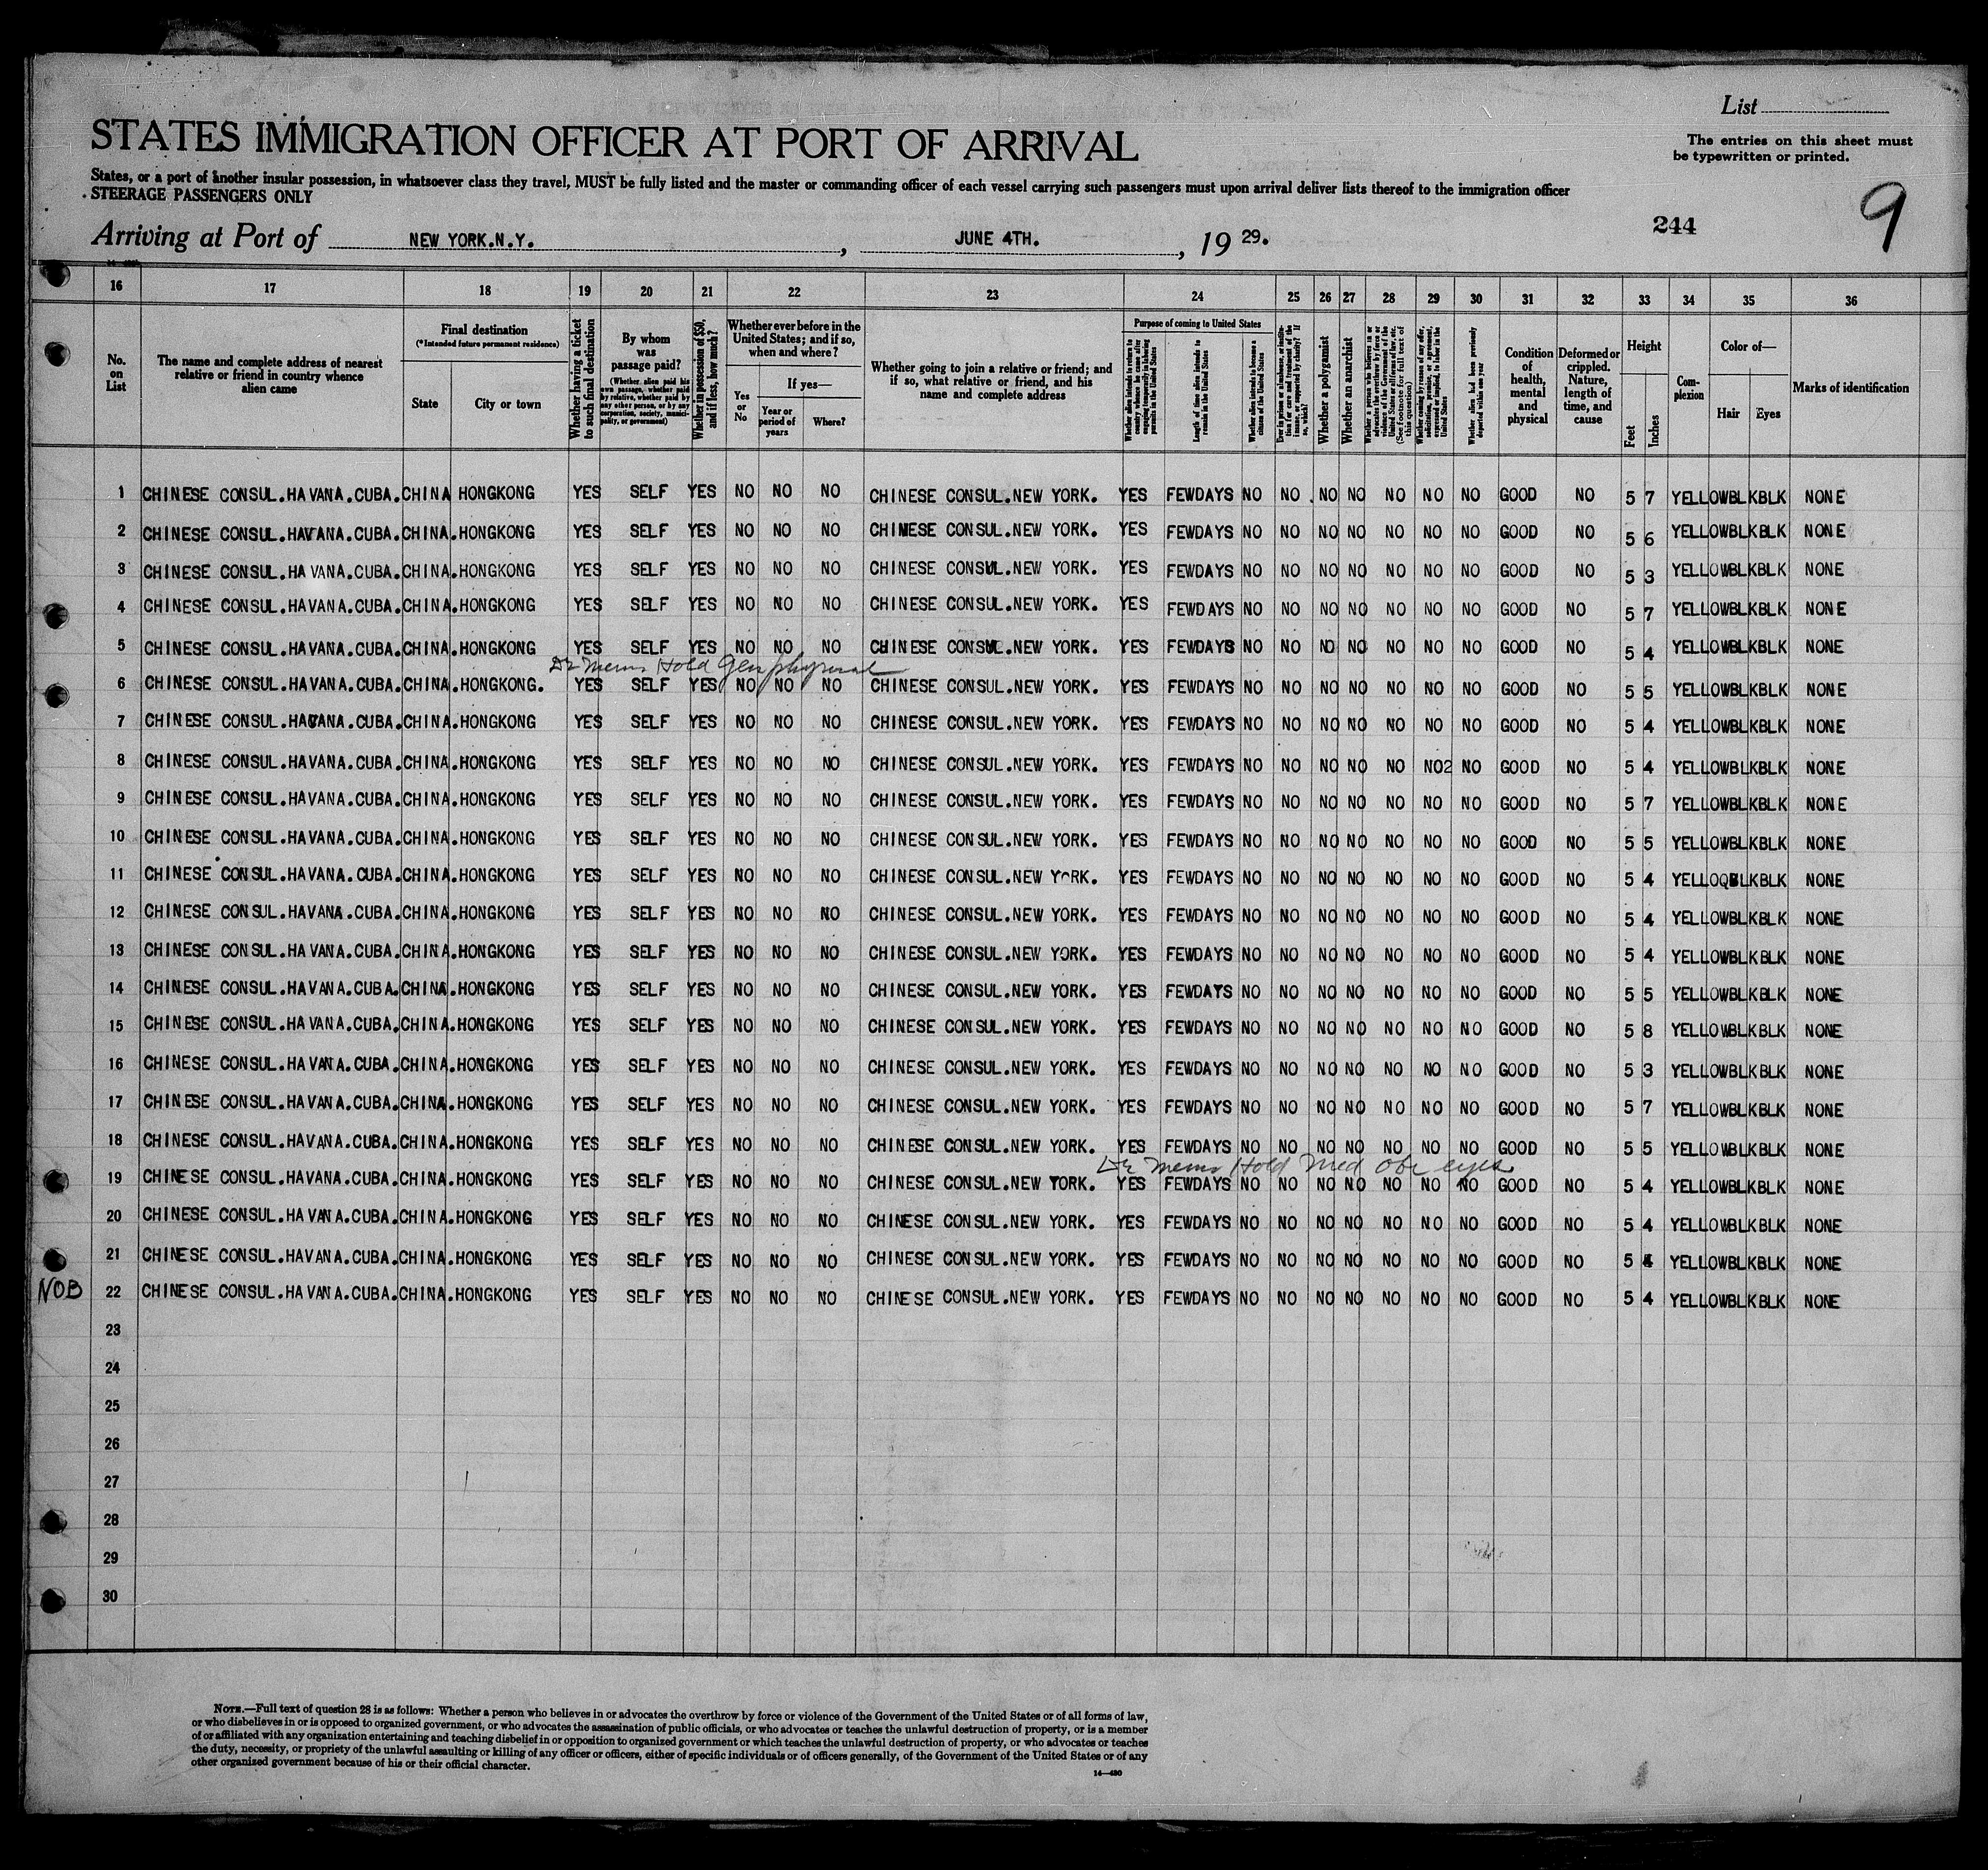 List
STATES IMMIGRATION OFFICER AT PORT OF ARRIVAL
The entries on this sheet must
be typewritten or printed.
States, or a port of another insular possession, in whatsoever class they travel, MUST be fully listed and the master or commanding officer of each vessel carrying such passengers must upon arrival deliver lists thereof to the immigration officer
STEERAGE PASSENGERS ONLY
244
9
Arriving at Port of NEW YORK.N.Y. , JUNE 4TH. , 19 29.
16 17 18 19 20 21 22 23 24 25 26 27 28 29 30 31 32 33 34 35 36
No. on List
The name and complete address of nearest relative or friend in country whence alien came
Final destination (*Intended future permanent residence)
State
City or town
Whether having a ticket to such final destination
By whom was passage paid?
(Whether alien paid his own passage, whether paid by relative, whether paid by any other person, or by any corporation, society, municipality, or government)
Whether in possession of $50, and if less, how much?
Whether ever before in the United States; and if so, when and where?
Yes or No
If yes—
Year or period of years
Where?
Whether going to join a relative or friend; and if so, what relative or friend, and his name and complete address
Purpose of coming to United States
Length of time alien intends to remain in the United States
Whether alien intends to become a citizen of the United States
Whether a polygamist
Whether an anarchist
Whether alien had been previously deported within one year
Condition of health, mental and physical
Deformed or crippled. Nature, length of time, and cause
Height
Feet
Inches
Complexion
Color of—
Hair
Eyes
Marks of identification
1 CHINESE CONSUL.HAVANA.CUBA.CHINA HONGKONG YES SELF YES NO NO NO CHINESE CONSUL.NEW YORK. YES FEWDAYS NO NO .NO NO NO NO NO GOOD NO 5 7 YELLOWBLKBLK NONE
2 CHINESE CONSUL.HAVANA.CUBA.CHINA.HONGKONG YES SELF YES NO NO NO CHINESE CONSUL.NEW YORK. YES FEWDAYS NO NO NO NO NO NO NO GOOD NO 5 6 YELLOWBLKBLK NONE
3 CHINESE CONSUL.HAVANA.CUBA.CHINA.HONGKONG YES SELF YES NO NO NO CHINESE CONSUL.NEW YORK. YES FEWDAYS NO NO NO NO NO NO NO GOOD NO 5 3 YELLOWBLKBLK NONE
4 CHINESE CONSUL.HAVANA.CUBA.CHINA.HONGKONG YES SELF YES NO NO NO CHINESE CONSUL.NEW YORK. YES FEWDAYS NO NO NO NO NO NO NO GOOD NO 5 7 YELLOWBLKBLK NONE
5 CHINESE CONSUL.HAVANA.CUBA.CHINA.HONGKONG YES SELF YES NO NO NO CHINESE CONSUL.NEW YORK. YES FEWDAYS NO NO NO NO NO NO NO GOOD NO 5 4 YELLOWBLKBLK NONE
Hold Gen physical
6 CHINESE CONSUL.HAVANA.CUBA.CHINA.HONGKONG. YES SELF YES NO NO NO CHINESE CONSUL.NEW YORK. YES FEWDAYS NO NO NO NO NO NO NO GOOD NO 5 5 YELLOWBLKBLK NONE
7 CHINESE CONSUL.HAVANA.CUBA.CHINA.HONGKONG YES SELF YES NO NO NO CHINESE CONSUL.NEW YORK. YES FEWDAYS NO NO NO NO NO NO NO GOOD NO 5 4 YELLOWBLKBLK NONE
8 CHINESE CONSUL.HAVANA.CUBA.CHINA.HONGKONG YES SELF YES NO NO NO CHINESE CONSUL.NEW YORK. YES FEWDAYS NO NO NO NO NO NO2 NO GOOD NO 5 4 YELLOWBLKBLK NONE
9 CHINESE CONSUL.HAVANA.CUBA.CHINA.HONGKONG YES SELF YES NO NO NO CHINESE CONSUL.NEW YORK. YES FEWDAYS NO NO NO NO NO NO NO GOOD NO 5 7 YELLOWBLKBLK NONE
10 CHINESE CONSUL.HAVANA.CUBA.CHINA.HONGKONG YES SELF YES NO NO NO CHINESE CONSUL.NEW YORK. YES FEWDAYS NO NO NO NO NO NO NO GOOD NO 5 5 YELLOWBLKBLK NONE
11 CHINESE CONSUL.HAVANA.CUBA.CHINA.HONGKONG YES SELF YES NO NO NO CHINESE CONSUL.NEW YORK. YES FEWDAYS NO NO NO NO NO NO NO GOOD NO 5 4 YELLOQBLKBLK NONE
12 CHINESE CONSUL.HAVANA.CUBA.CHINA.HONGKONG YES SELF YES NO NO NO CHINESE CONSUL.NEW YORK. YES FEWDAYS NO NO NO NO NO NO NO GOOD NO 5 4 YELLOWBLKBLK NONE
13 CHINESE CONSUL.HAVANA.CUBA.CHINA.HONGKONG YES SELF YES NO NO NO CHINESE CONSUL.NEW YORK. YES FEWDAYS NO NO NO NO NO NO NO GOOD NO 5 4 YELLOWBLKBLK NONE
14 CHINESE CONSUL.HAVANA.CUBA.CHINA.HONGKONG YES SELF YES NO NO NO CHINESE CONSUL.NEW YORK. YES FEWDAYS NO NO NO NO NO NO NO GOOD NO 5 5 YELLOWBLKBLK NONE
15 CHINESE CONSUL.HAVANA.CUBA.CHINA.HONGKONG YES SELF YES NO NO NO CHINESE CONSUL.NEW YORK. YES FEWDAYS NO NO NO NO NO NO NO GOOD NO 5 8 YELLOWBLKBLK NONE
16 CHINESE CONSUL.HAVANA.CUBA.CHINA.HONGKONG YES SELF YES NO NO NO CHINESE CONSUL.NEW YORK. YES FEWDAYS NO NO NO NO NO NO NO GOOD NO 5 3 YELLOWBLKBLK NONE
17 CHINESE CONSUL.HAVANA.CUBA.CHINA.HONGKONG YES SELF YES NO NO NO CHINESE CONSUL.NEW YORK. YES FEWDAYS NO NO NO NO NO NO NO GOOD NO 5 7 YELLOWBLKBLK NONE
18 CHINESE CONSUL.HAVANA.CUBA.CHINA.HONGKONG YES SELF YES NO NO NO CHINESE CONSUL.NEW YORK. YES FEWDAYS NO NO NO NO NO NO NO GOOD NO 5 5 YELLOWBLKBLK NONE
Hold Med eyes
19 CHINESE CONSUL.HAVANA.CUBA.CHINA.HONGKONG YES SELF YES NO NO NO CHINESE CONSUL.NEW YORK. YES FEWDAYS NO NO NO NO NO NO NO GOOD NO 5 4 YELLOWBLKBLK NONE
20 CHINESE CONSUL.HAVANA.CUBA.CHINA.HONGKONG YES SELF YES NO NO NO CHINESE CONSUL.NEW YORK. YES FEWDAYS NO NO NO NO NO NO NO GOOD NO 5 4 YELLOWBLKBLK NONE
21 CHINESE CONSUL.HAVANA.CUBA.CHINA.HONGKONG YES SELF YES NO NO NO CHINESE CONSUL.NEW YORK. YES FEWDAYS NO NO NO NO NO NO NO GOOD NO 5 4 YELLOWBLKBLK NONE
NOB 22 CHINESE CONSUL.HAVANA.CUBA.CHINA.HONGKONG YES SELF YES NO NO NO CHINESE CONSUL.NEW YORK. YES FEWDAYS NO NO NO NO NO NO NO GOOD NO 5 4 YELLOWBLKBLK NONE
23
24
25
26
27
28
29
30
NOTE.—Full text of question 28 is as follows: Whether a person who believes in or advocates the overthrow by force or violence of the Government of the United States or of all forms of law,
or who disbelieves in or is opposed to organized government, or who advocates the assassination of public officials, or who advocates or teaches the unlawful destruction of property, or is a member
of or affiliated with any organization entertaining and teaching disbelief in or opposition to organized government or which teaches the unlawful destruction of property, or who advocates or teaches
the duty, necessity, or propriety of the unlawful assaulting or killing of any officer or officers, either of specific individuals or of officers generally, of the Government of the United States or of any
other organized government because of his or their official character.
14—480